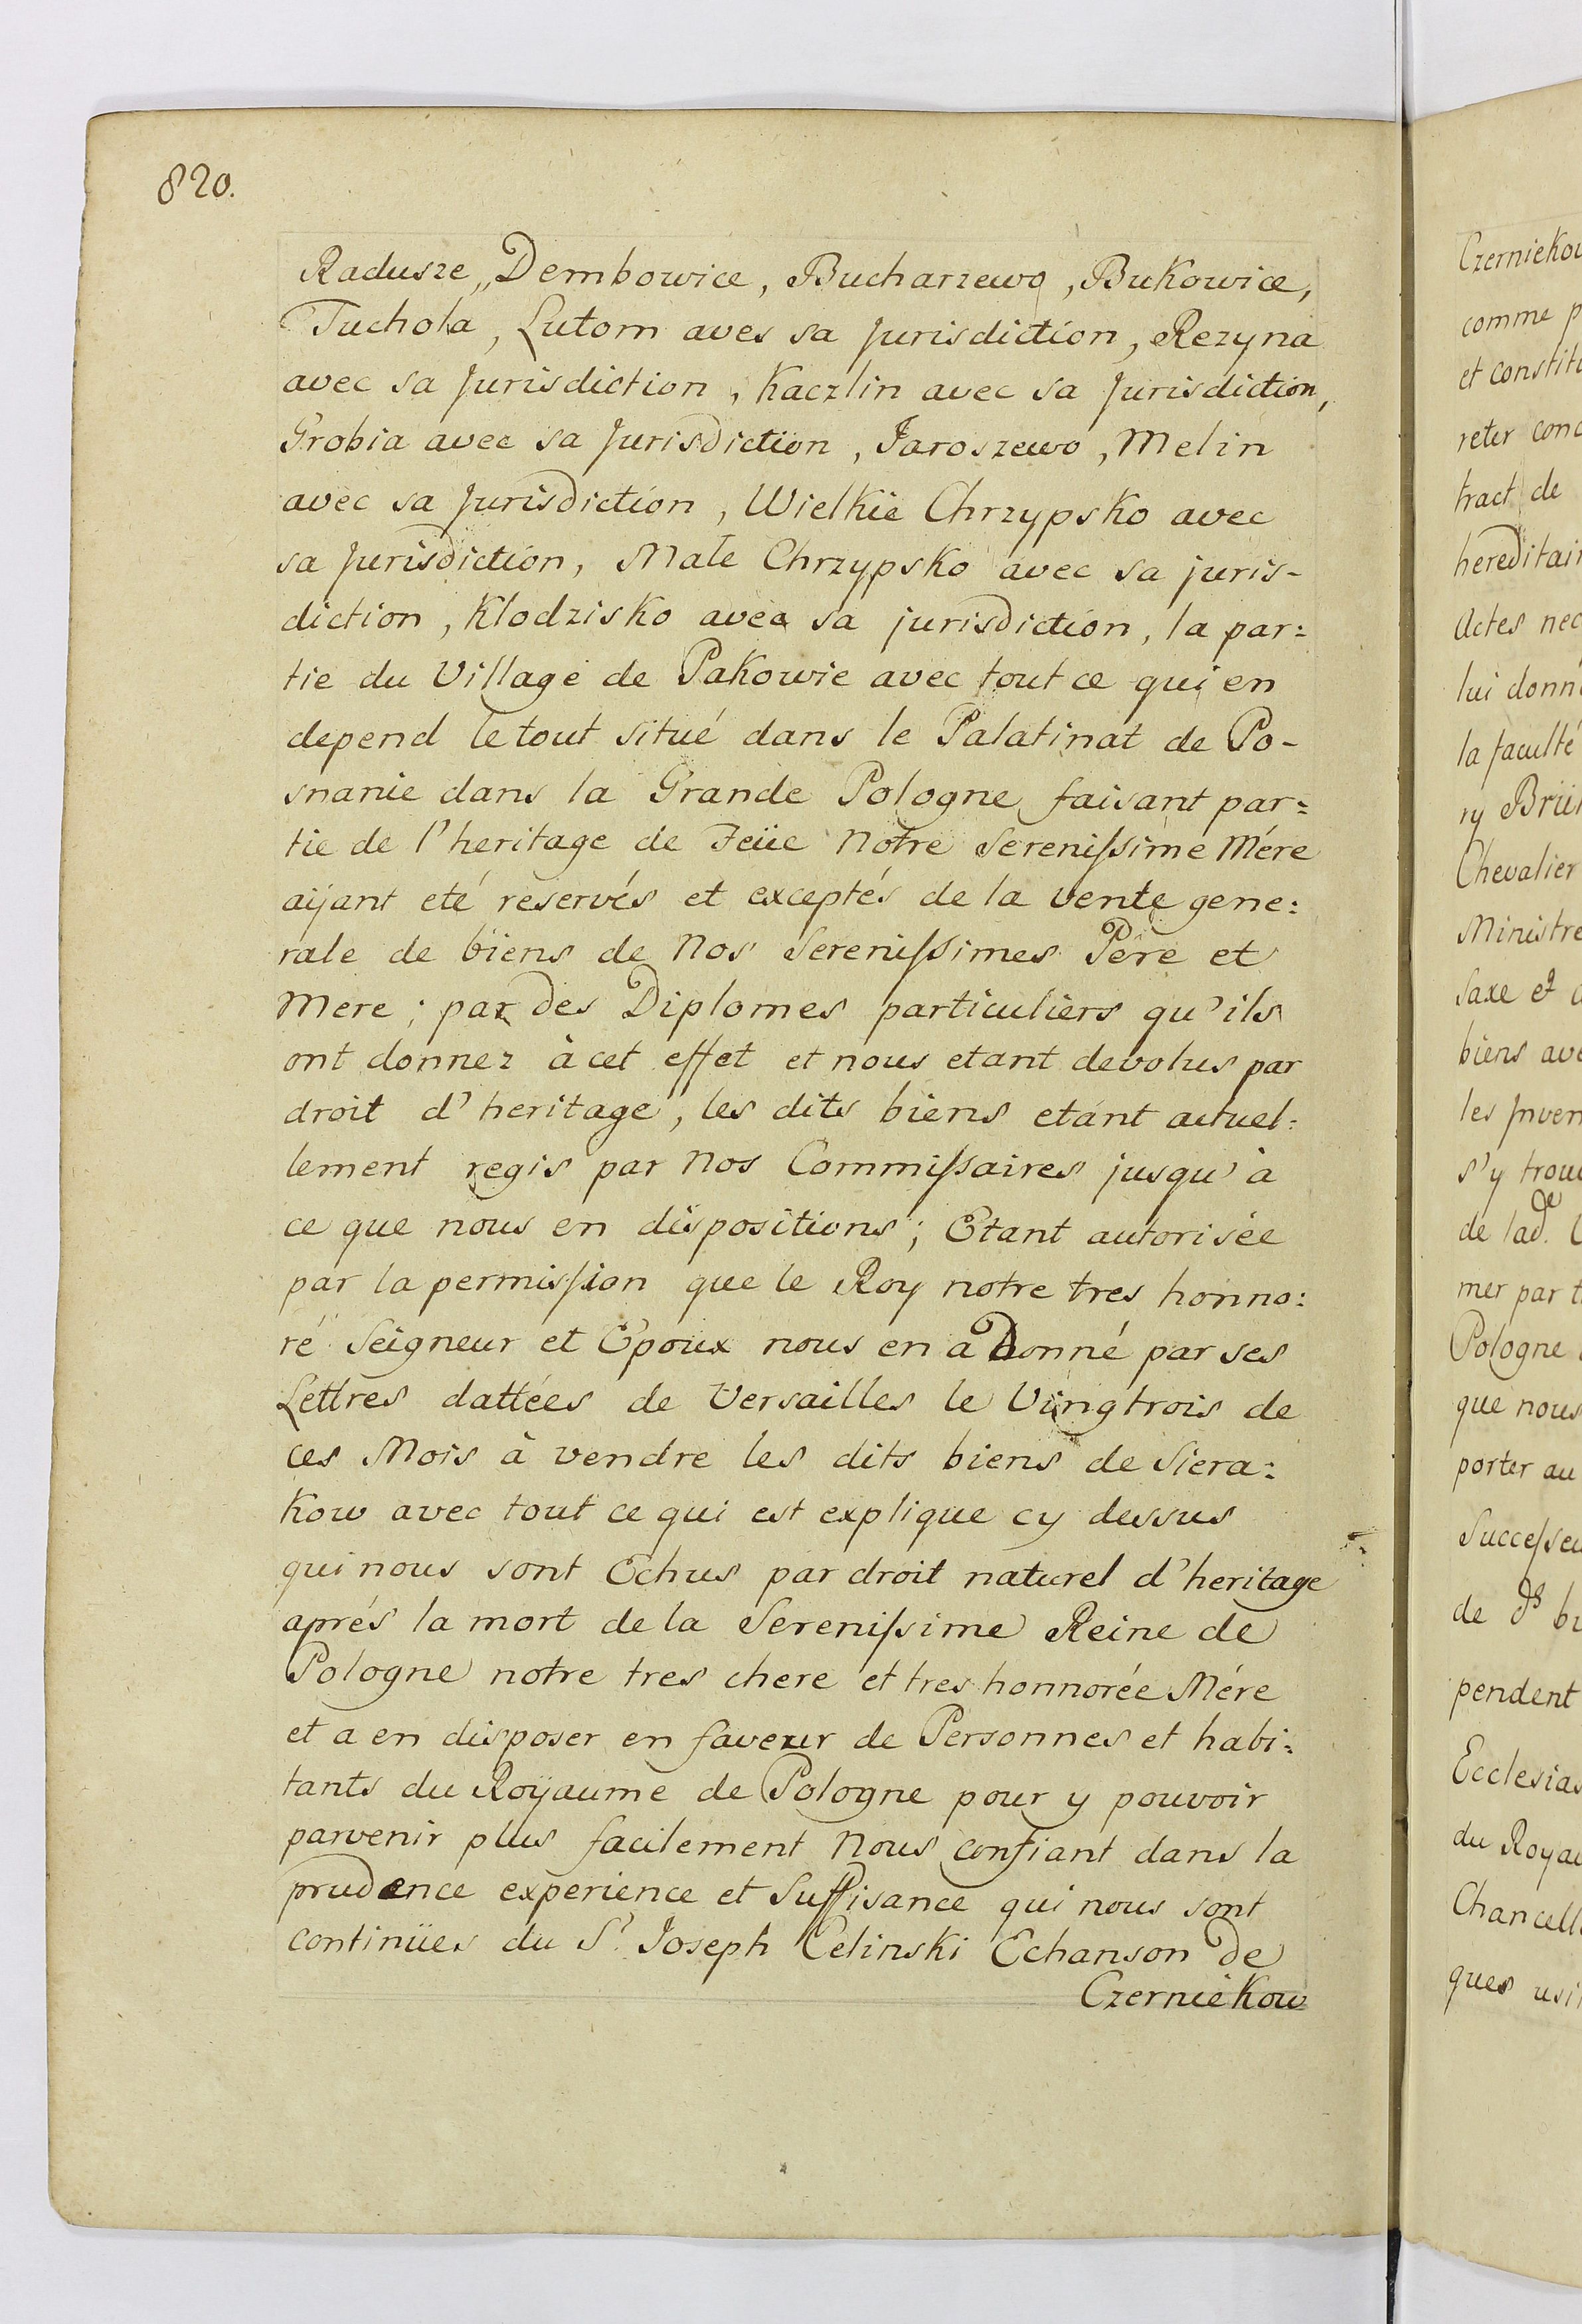 820.
Radusze,, Dembowice, Bucharzewo, Bukowice,
Tuchola, Lutom aves sa Jurisdiction, Rezyna
avec sa Jurisdiction, Kaczlin avec sa Jurisdiction,
Grobia avec sa Jurisdiction, Jaroszewo, Melin
avec sa Jurisdiction, Wielkie Chrzypsko avec
sa Jurisdiction, Małe Chrzypsko avec sa juris-
diction, Klodzisko avec sa jurisdiction, la par=
tie du Village de Pakowie avec tout ce qui en
depend le tout situé dans le Palatinat de Po-
snanie dans la Grande Pologne, faisant par=
tie de l'heritage de Feüe Notre Serenissime Mére
aÿant eté reservés et exceptés de la vente gene=
rale de biens de Nos Serenissimes Pére et
Mere; par des Diplomes particuliers qu'ils
ont donnez à cet effet et nous etant devolus par
droit d'heritage, les dits biens etant actuel=
lement regis par Nos Commissaires jusqu'à
ce que nous en dispositions; Etant autorisée
par la permission que le Roy notre tres honno=
ré Seigneur et Epoux nous en a Donné par ses
Lettres dattées de Versailles le Vingtrois de
ces Mois à vendre les dits biens de Siera=
kow avec tout ce qui est explique cy dessus
qui nous sont Echus par droit naturel d'heritage
aprés la mort de la Serenissime Reine de
Pologne notre tres chere et tres honnorée Mére
et a en disposer en faveur de Personnes et habi=
tants du Roÿaume de Pologne pour y pouvoir
parvenir plus facilement Nous confiant dans la
prudence experience et Suffisance qui nous sont
continües du Sr. Joseph Celinski Echanson de
Czerniekow
Czernieko
comme p
et constit
reter conc
tract de
hereditair
Actes nec
lui donn
la faculté
ry Brü
Chevalier
Ministre
Saxe et
biens ave
les Inven
s'y trou
de lad.e
mer par t
Pologne
que nous
porter au
Successeu
de ds bi
pendent
Ecclesias
du Royau
Chancell
ques usi